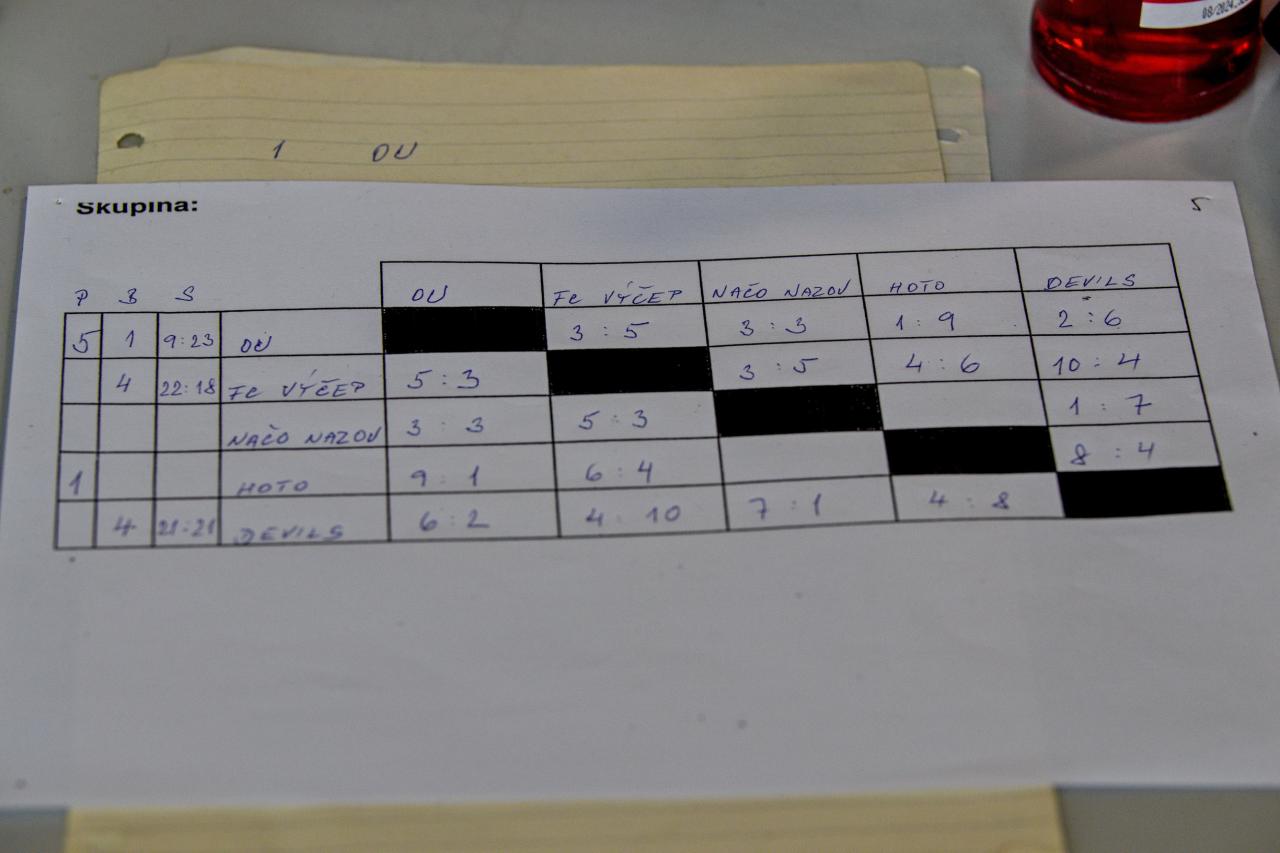 08/2024
1 OU
Skupina:
5
OU FC VÝČEP NAČO NAZOV HOTO DEVILS
P B S
5 1 9:23 OU 3:5 3:3 1:9 2:6
4 22:18 FC VÝČEP 5:3 3:5 4:6 10:4
NAČO NAZOV 3:3 5:3 1:7
1 HOTO 9:1 6:4 8:4
4 21:21 DEVILS 6:2 4:10 7:1 4:8